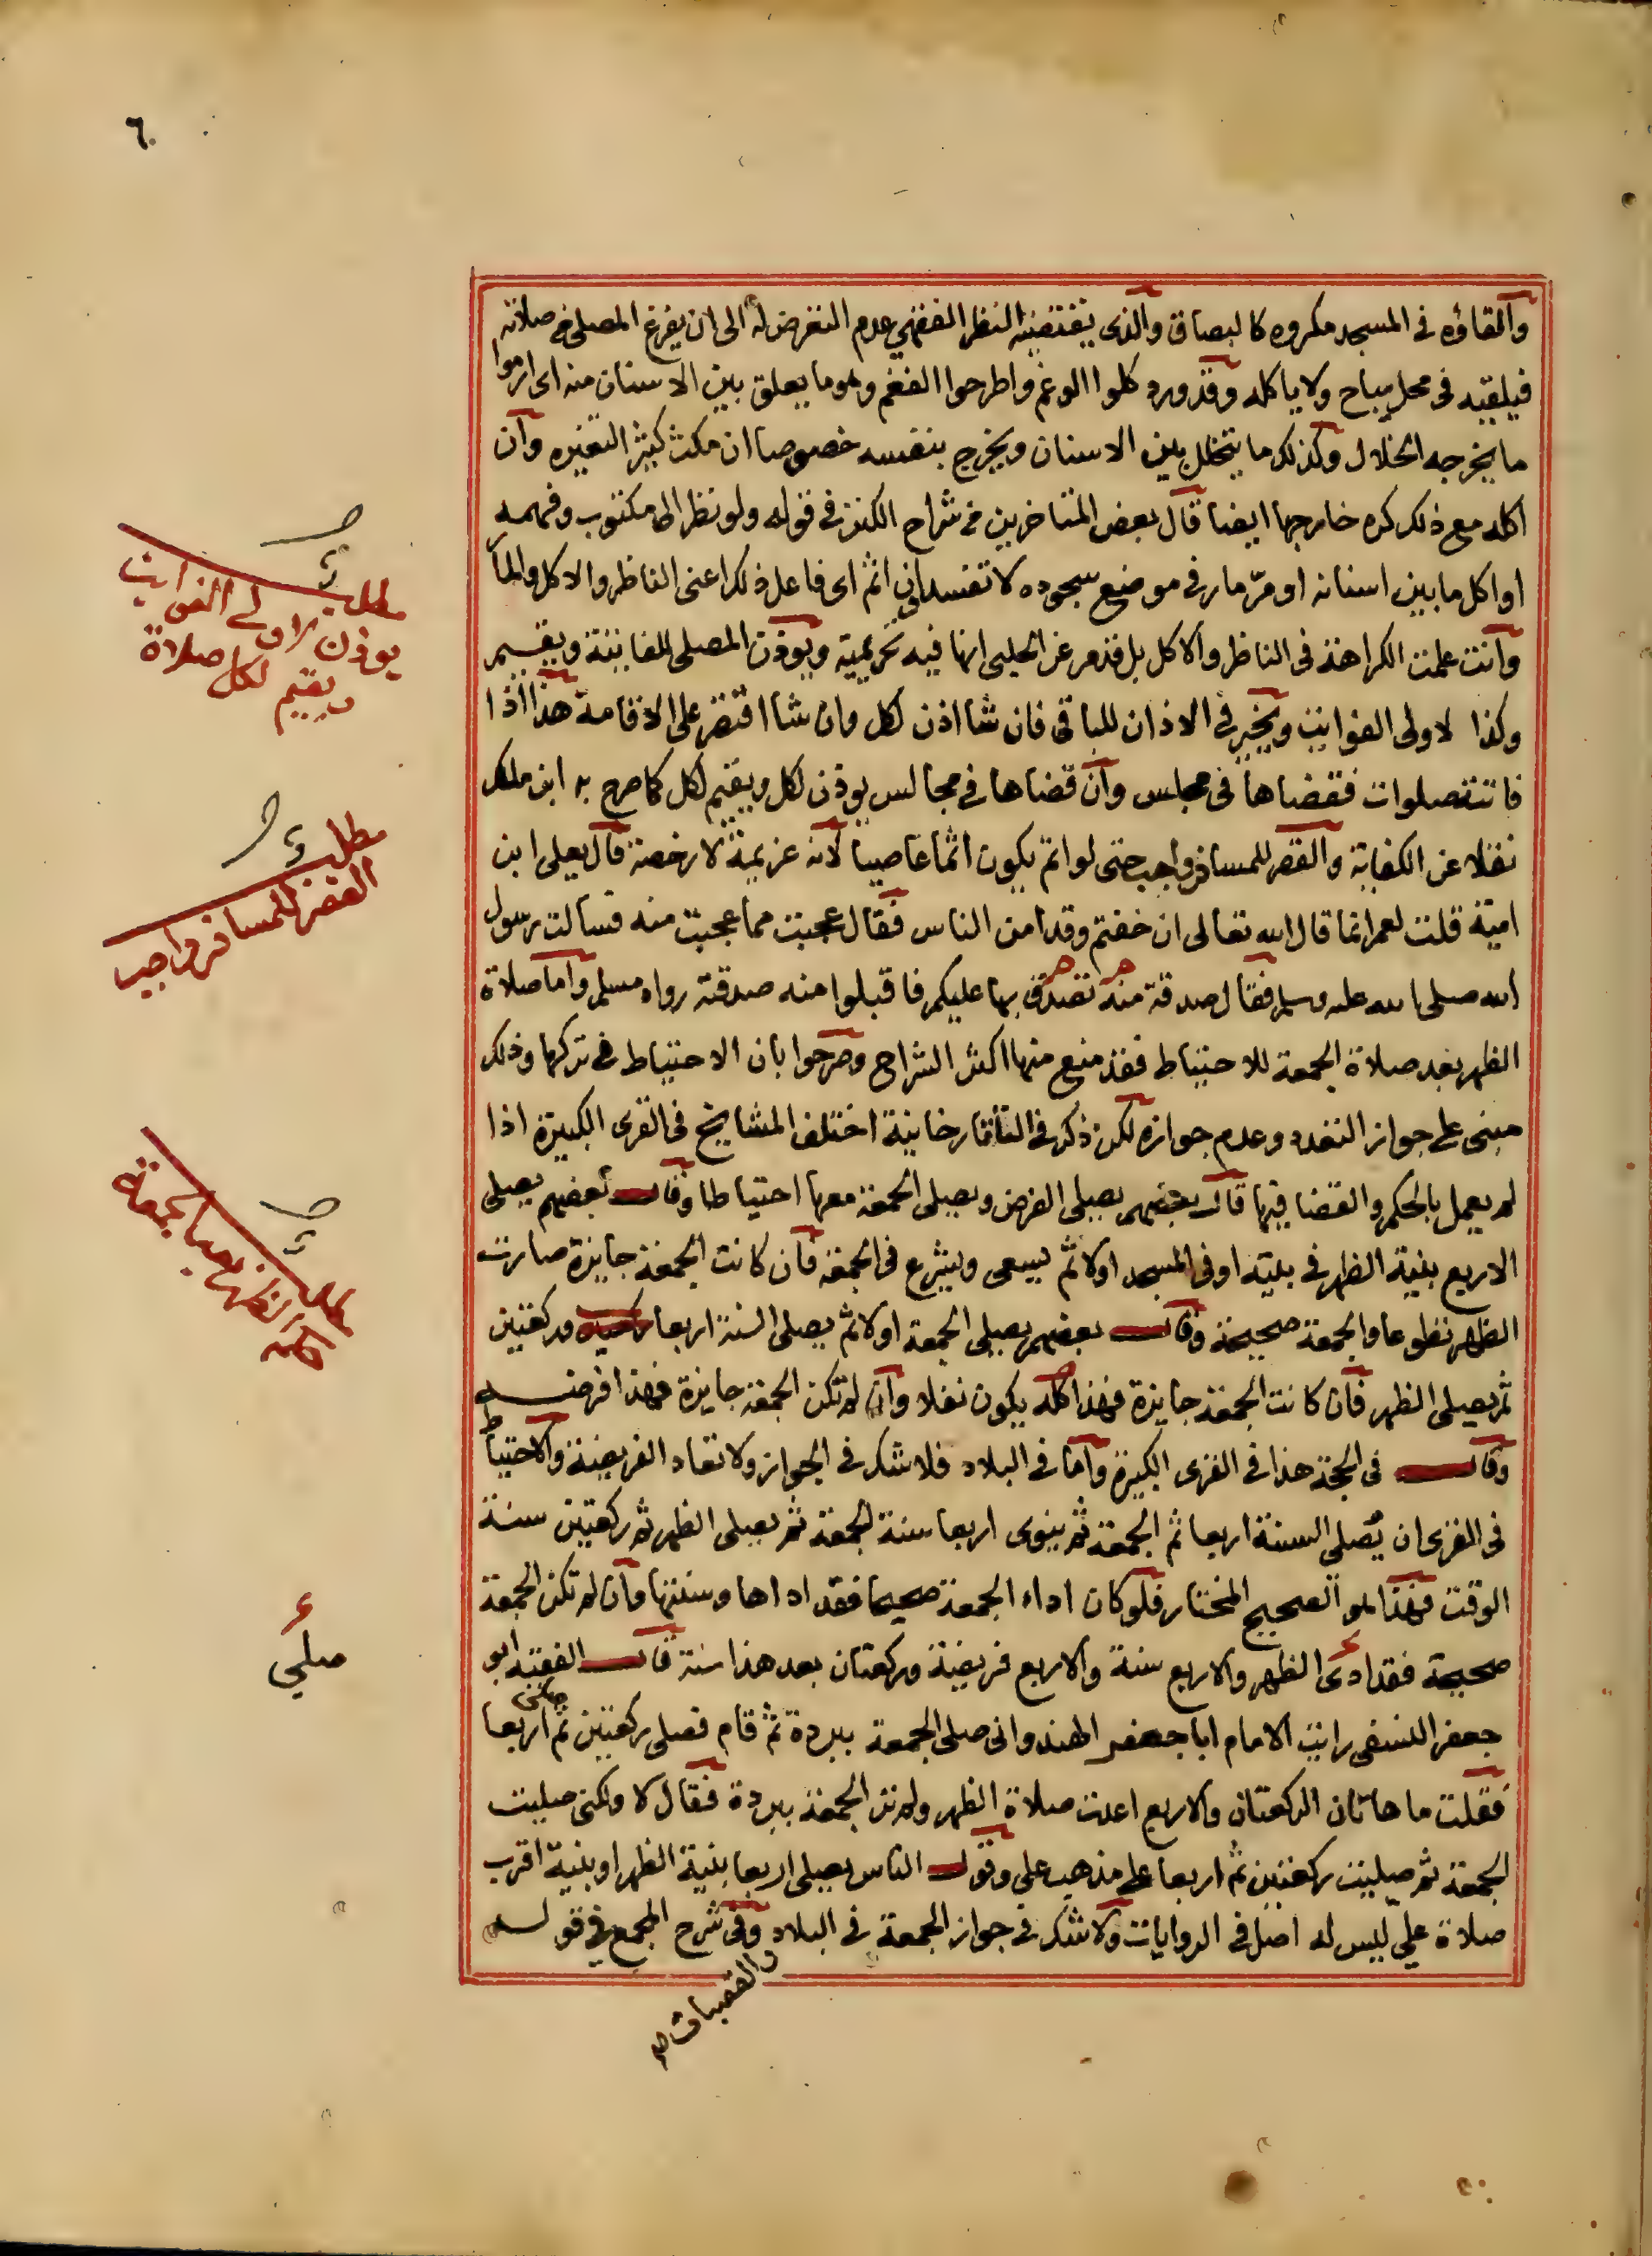 ٦٠
والقاؤه في المسجد مكروه كالبصاق والذي يقتضيه النظر الفقهي عدم التعرض له الى ان يفرغ المصلي من صلاته
فيلقيه في محل مباح ولا ياكله وقد ورد كلوا الوغم واطرحوا الفغم وهو ما يعلق بين الاسنان منه اي ارموا
ما يخرجه الخلال وكذلك ما يتخلل بين الاسنان ويخرج بنفسه خصوصا ان مكث كثير التغيره وان
اكله مع ذلك كره خارجها ايضا قال بعض المتاخرين من شراح الكنز في قوله ولو نظر الى مكتوب وفهمه
او اكل ما بين اسنانه او مر مار في موضع سجوده لا تفسد اثم اي فاعل ذلك اعني الناظر والاكل والمار
وانت علمت الكراهة في الناظر والاكل بل قد مر عن الحلبي انها فيه تحريمية ويوذن المصلي للفايتة ويقيم
وكذا لاولى الفوايت ويخير في الاذان للباقي فان شا اذن لكل وان شا اقتصر على الاقامة هذا اذا
فاتته صلوات فقضاها في مجلس وان قضاها في مجالس يوذن لكل ويقيم لكل كما صرح به ابن ملك
نقلا عن الكفاية والقصر للمسافر واجب حتى لو اتم يكون اثما عاصيا لانه عزيمة لا رخصة قال يعلى ابن
امية قلت لعمر انما قال الله تعالى ان خفتم وقد امن الناس فقال عجبت مما عجبت منه فسالت رسول
الله صلى الله عليه وسلم فقال صدقة منه تصدق بها عليكم فاقبلوا منه صدقته رواه مسلم واما صلاة
الظهر بعد صلاة الجمعة للاحتياط فقد منع منها اكثر الشراح وصرحوا بان الاحتياط في تركها وذلك
مبني على جواز التعدد وعدم جوازه لكن ذكر في التاتارخانية اختلف المشايخ في القرى الكبيرة اذا
لم يعمل بالحكم والقضا فيها قال بعضهم يصلي الفرض ويصلي الجمعة معها احتياطا وقال بعضهم يصلي
الاربع بنية الظهر في بيته او في المسجد اولا ثم يسعى ويشرع في الجمعة فان كانت الجمعة جايزة صارت
الظهر تطوعا والجمعة صحيحة وقال بعضهم يصلي الجمعة اولا ثم يصلي السنة اربعا وركعتين
ثم يصلي الظهر فان كانت الجمعة جايزة فهذا كله يكون نفلا وان لم تكن الجمعة جايزة فهذا فرضه
وقال في الحجة هذا في القرى الكبيرة واما في البلاد فلا شك في الجواز ولا تعاد الفريضة والاحتياط
في القرى ان يصلي السنة اربعا ثم الجمعة ثم ينوي اربعا سنة الجمعة ثم يصلي الظهر ثم ركعتين سنة
الوقت فهذا هو الصحيح المختار فلو كان اداء الجمعة صحيحا فقد اداها وسنتها وان لم تكن الجمعة
صحيحة فقد ادى الظهر والاربع سنة والاربع فريضة وركعتان بعد هذا سنة قال الفقيه ابو
جعفر النسفي رايت الامام ابا جعفر الهندواني صلى الجمعة ببردة ثم قام فصلى ركعتين ثم صلى اربعا
فقلت ما هاتان الركعتان والاربع اعدت صلاة الظهر ولم تر الجمعة ببردة فقال لا ولكني صليت
الجمعة ثم صليت ركعتين ثم اربعا على مذهب علي وقول الناس يصلي اربعا بنية الظهر او بنية اقرب
صلاة علي ليس له اصل في الروايات ولا شك في جواز الجمعة في البلاد وفي شرح المجمع في قوله
والقصبات صح
مطلب
يوذن لاولى الفوايت
ويقيم لكل صلاة
مطلب
القصر للمسافر واجب
مطلب
صلي